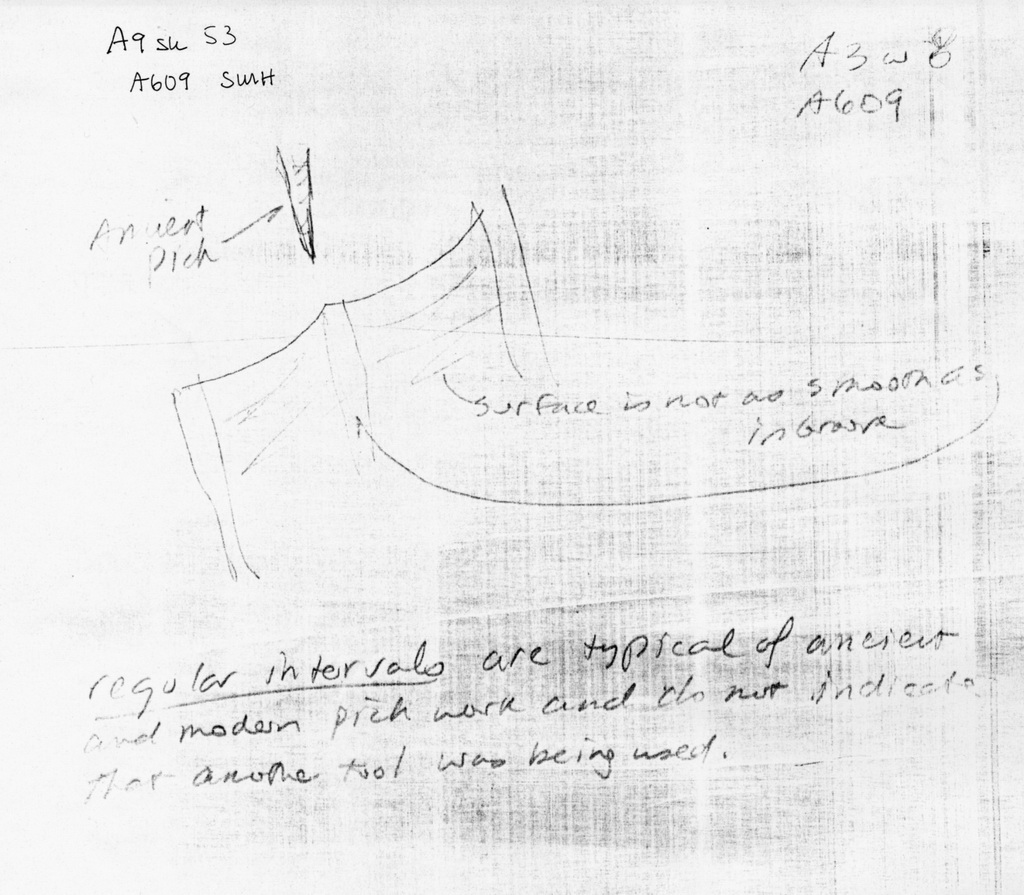 A9 sk 53
A609 SWH
A 3 w 8
A609
Ancient
pick
surface is not as smooth as
in Groove
regular intervals are typical of ancient
and modern pick work and do not indicate
that another tool was being used.